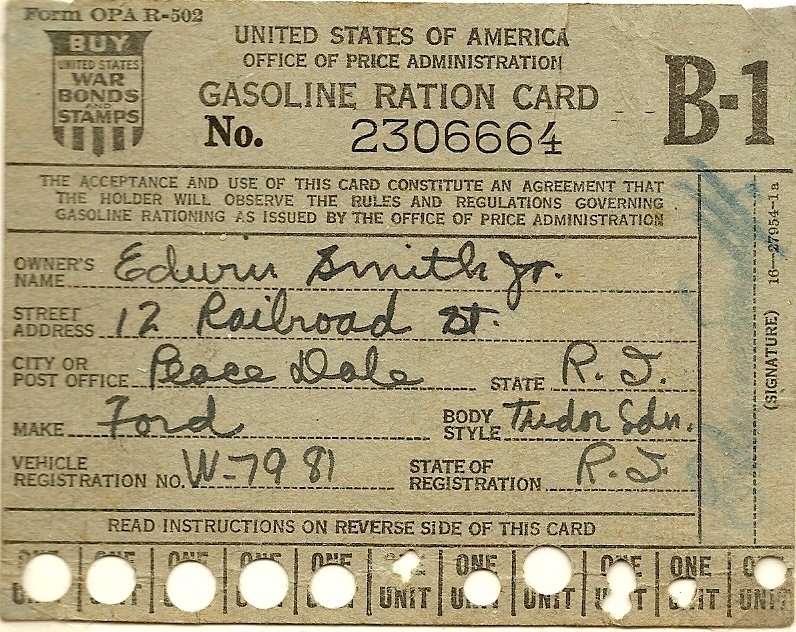 Form OPA R-502
BUY
UNITED STATES
WAR
BONDS
AND
STAMPS
UNITED STATES OF AMERICA
OFFICE OF PRICE ADMINISTRATION
GASOLINE RATION CARD
No. 2306664
B-1
THE ACCEPTANCE AND USE OF THIS CARD CONSTITUTE AN AGREEMENT THAT
THE HOLDER WILL OBSERVE THE RULES AND REGULATIONS GOVERNING
GASOLINE RATIONING AS ISSUED BY THE OFFICE OF PRICE ADMINISTRATION
OWNER'S NAME Edwin Smith Jr.
STREET ADDRESS 12 Railroad St.
CITY OR POST OFFICE Peace Dale STATE R. I.
MAKE Ford BODY STYLE Tudor Sdn.
VEHICLE REGISTRATION NO. W-7981 STATE OF REGISTRATION R. I.
READ INSTRUCTIONS ON REVERSE SIDE OF THIS CARD
(SIGNATURE) 16—27954-1a
ONE ONE ONE ONE ONE ONE ONE ONE ONE ONE
UNIT UNIT UNIT UNIT UNIT UNIT UNIT